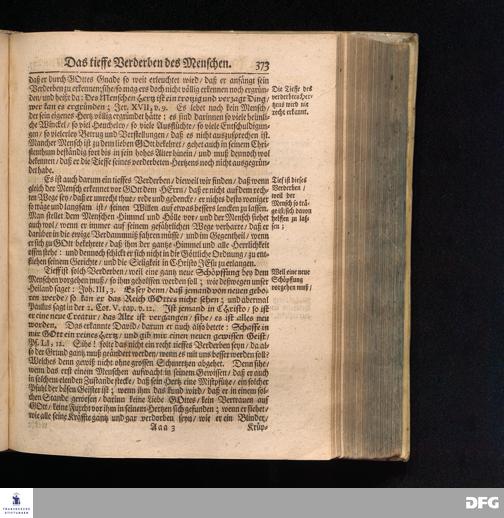 Das tieffe Verderben des Menschen. 373
daß er durch GOttes Gnade so weit erleuchtet wird/ daß er anfängt sein
Verderben zu erkennen/ sihe/ so mag ers doch nicht völlig erkennen noch ergrün-
den/ und heißt da: Des Menschen Hertz ist ein trotzig und verzagt Ding/
wer kan es ergründen; Jer. XVII, v. 9. Es lebet noch kein Mensch/
der sein eigenes Hertz völlig ergründet hätte: es sind darinnen so viele heimli-
che Winckel/ so viel Heucheley/ so viele Ausflüchte/ so viele Entschuldigun-
gen/ so vielerley Betrug und Verstellungen/ daß es nicht auszusprechen ist.
Mancher Mensch ist zu dem lieben GOtt bekehret/ gehet auch in seinem Chri-
stenthum beständig fort bis in sein hohes Alter hinein/ und muß dennoch wol
bekennen/ daß er die Tieffe seines verderbeten Hertzens noch nicht ausgegrün-
det habe.
Die Tieffe des
verderbten Her-
tzens wird nie
recht erkant.
Es ist auch darum ein tieffes Verderben/ dieweil wir finden/ daß wenn
gleich der Mensch erkennet vor GOtt dem HErrn/ daß er nicht auf dem rech-
ten Wege sey/ daß er unrecht thue/ rede und gedencke/ er nichts desto weniger
so träge und langsam ist/ seinen Willen auf etwas bessers lencken zu lassen.
Man stellet dem Menschen Himmel und Hölle vor/ und der Mensch siehet
auch wol/ wenn er immer auf seinem gefährlichen Wege verharre/ daß er
darüber in die ewige Verdammniß fahren müsse/ und im Gegentheil/ wenn
er sich zu GOtt bekehrete/ daß ihm der gantze Himmel und alle Herrlichkeit
offen stehe: und dennoch schickt er sich nicht in die Göttliche Ordnung/ zu ent-
fliehen seinem Gerichte/ und die Seligkeit in Christo JEsu zu erlangen.
Tief ist dieses
Verderben/
weil der
Mensch so trä-
ge/ sich davon
helffen zu las-
sen;
Tieff ist solch Verderben/ weil eine gantz neue Schöpffung bey dem
Menschen vorgehen muß/ so ihm geholffen werden soll; wie deswegen unser
Heiland saget: Joh. III, 3. Es sey denn/ daß jemand von neuen gebo-
ren werde/ so kan er das Reich GOttes nicht sehen; und abermal
Paulus sagt in der 2. Cor. V. cap. v. 12. Ist jemand in Christo/ so ist
er eine neue Creatur/ das Alte ist vergangen/ sihe/ es ist alles neu
worden. Das erkannte David/ darum er auch also betete: Schaffe in
mir GOtt ein reines Hertz/ und gib mir einen neuen gewissen Geist/
Ps. LI, 12. Sihe! solte das nicht ein recht tieffes Verderben seyn/ da al-
so der Grund gantz muß geändert werden/ wenn es mit uns besser werden soll?
Welches denn gewiß nicht ohne grossen Schmertzen abgehet. Denn sihe/
wenn das erst einem Menschen aufwacht in seinem Gewissen/ daß er auch
in solchem elenden Zustande stecke/ daß sein Hertz eine Mistpfütze/ ein solcher
Pfuhl der bösen Geister ist; wenn ihm das kund wird/ daß er in einem sol-
chen Stande gewesen/ darinn keine Liebe GOttes/ kein Vertrauen auf
GOtt/ keine Furcht vor ihm in seinem Hertzen sich gefunden; wenn er siehet/
wie alle seine Kräffte gantz und gar verdorben seyn/ wie er ein Blinder/
Weil eine neue
Schöpfung
vorgehen muß;
Aaa 3 Krüp-
FRANCKESCHE
STIFTUNGEN
DFG